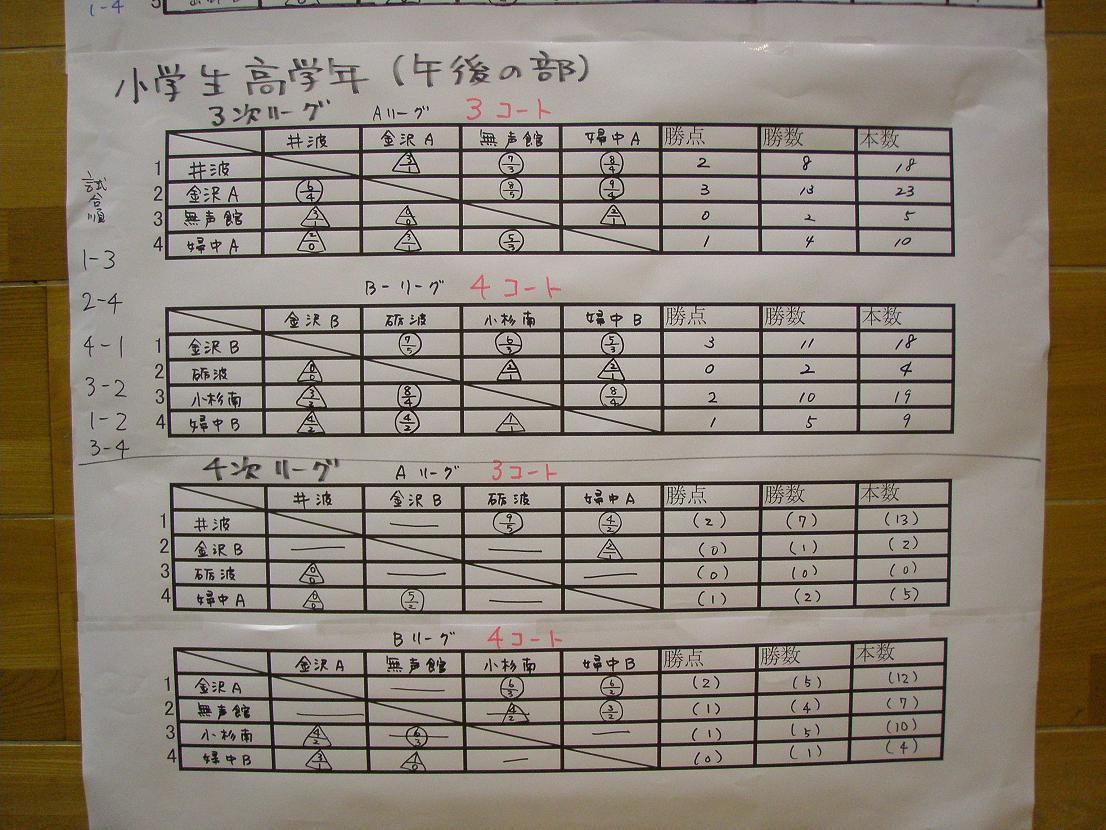 1-4
5
小学生高学年(午後の部)
3次リーグ Aリーグ 3コート
井波 金沢A 無声館 婦中A 勝点 勝数 本数
1 井波 3/1 7/3 8/4 2 8 18
2 金沢A 6/4 8/5 9/4 3 13 23
3 無声館 3/1 0/0 2/1 0 2 5
4 婦中A 2/0 3/1 5/3 1 4 10
試合順
1-3
2-4
4-1
3-2
1-2
3-4
B-リーグ 4コート
金沢B 砺波 小杉南 婦中B 勝点 勝数 本数
1 金沢B 7/5 6/3 5/3 3 11 18
2 砺波 0/0 2/1 2/1 0 2 4
3 小杉南 3/3 8/4 8/4 2 10 19
4 婦中B 4/2 4/2 1/1 1 5 9
4次リーグ Aリーグ 3コート
井波 金沢B 砺波 婦中A 勝点 勝数 本数
1 井波 — 9/5 4/2 (2) (7) (13)
2 金沢B — — 2/1 (0) (1) (2)
3 砺波 0/0 — — (0) (0) (0)
4 婦中A 0/0 5/2 — (1) (2) (5)
Bリーグ 4コート
金沢A 無声館 小杉南 婦中B 勝点 勝数 本数
1 金沢A — 6/3 6/2 (2) (5) (12)
2 無声館 — 4/2 3/2 (1) (4) (7)
3 小杉南 4/2 6/3 — (1) (5) (10)
4 婦中B 3/1 1/0 — (0) (1) (4)